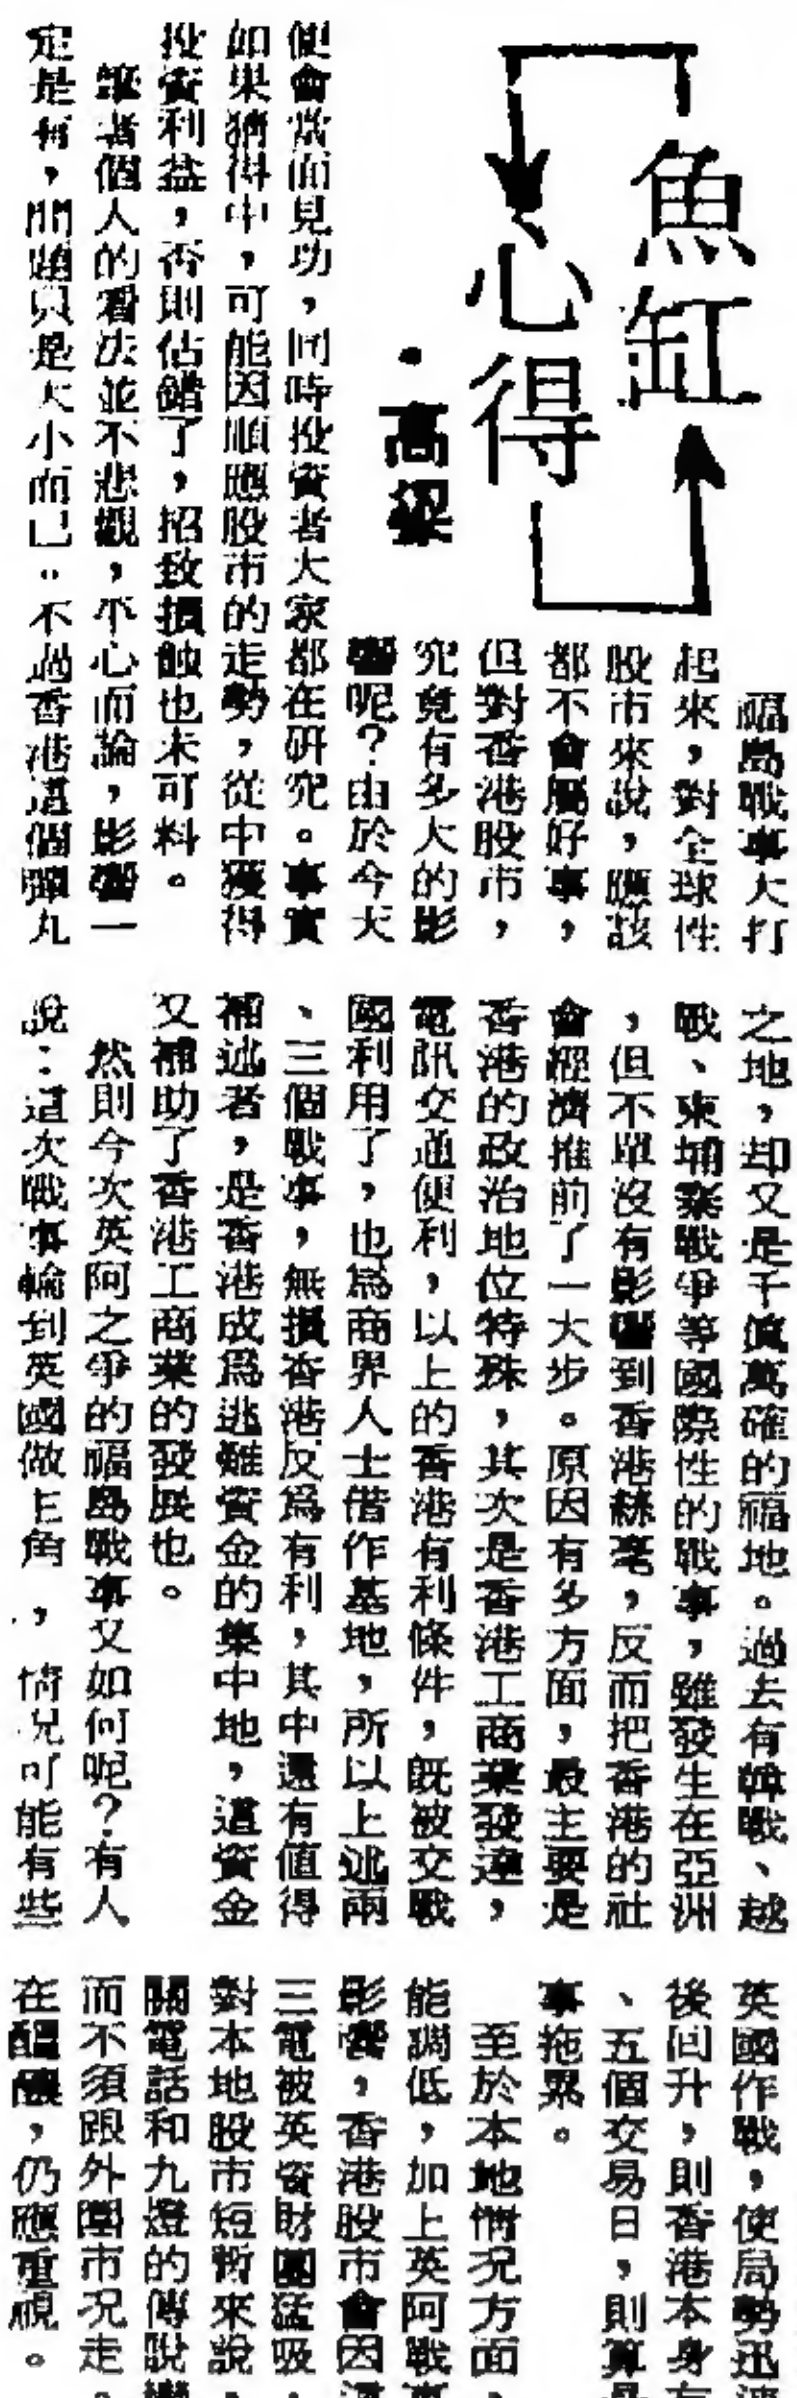 魚缸
心得
・高梁
福島戰事大打
起來，對全球性
股市來說，應該
都不會屬好事，
但對香港股市，
究竟有多大的影
響呢？由於今天
便會當面見功，同時投資者大家都在研究。事實
如果猜得中，可能因順應股市的走勢，從中獲得
投資利益，否則估錯了，招致損蝕也未可料。
筆者個人的看法並不悲觀，平心而論，影響一
定是有，問題只是大小而已。不過香港這個彈丸
之地，却又是千眞萬確的福地。過去有韓戰、越
戰、柬埔寨戰爭等國際性的戰事，雖發生在亞洲
，但不單沒有影響到香港絲毫，反而把香港的社
會經濟推前了一大步。原因有多方面，最主要是
香港的政治地位特殊，其次是香港工商業發達，
電訊交通便利，以上的香港有利條件，既被交戰
國利用了，也爲商界人士借作基地，所以上述兩
、三個戰事，無損香港反爲有利，其中還有值得
補述者，是香港成爲逃難資金的集中地，這資金
又補助了香港工商業的發展也。
然則今次英阿之爭的福島戰事又如何呢？有人
說：這次戰事輪到英國做主角，情況可能有些
英國作戰，使局勢迅速
後回升，則香港本身有
、五個交易日，則算是
事拖累。
至於本地情況方面，
能調低，加上英阿戰事
影響，香港股市會因這
三電被英資財團猛吸，
對本地股市短暫來說，
關電話和九燈的傳說
而不須跟外圍市況走。
在醞釀，仍應重視。